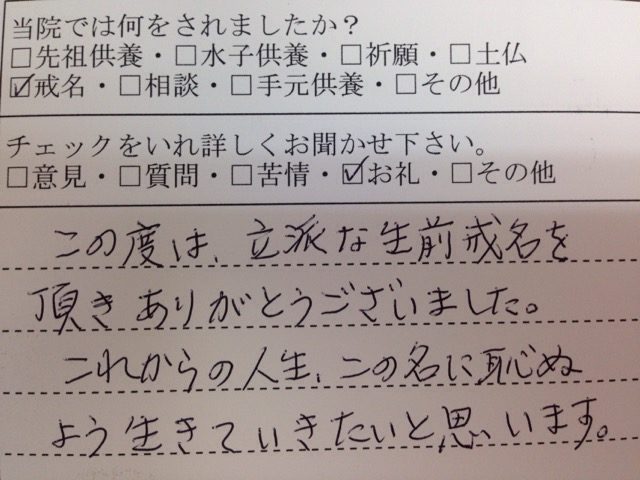 当院では何をされましたか？
□先祖供養・□水子供養・□祈願・□土仏
☑戒名・□相談・□手元供養・□その他
チェックをいれ詳しくお聞かせ下さい。
□意見・□質問・□苦情・☑お礼・□その他
この度は、立派な生前戒名を
頂きありがとうございました。
これからの人生、この名に恥ぬ
よう生きていきたいと思います。